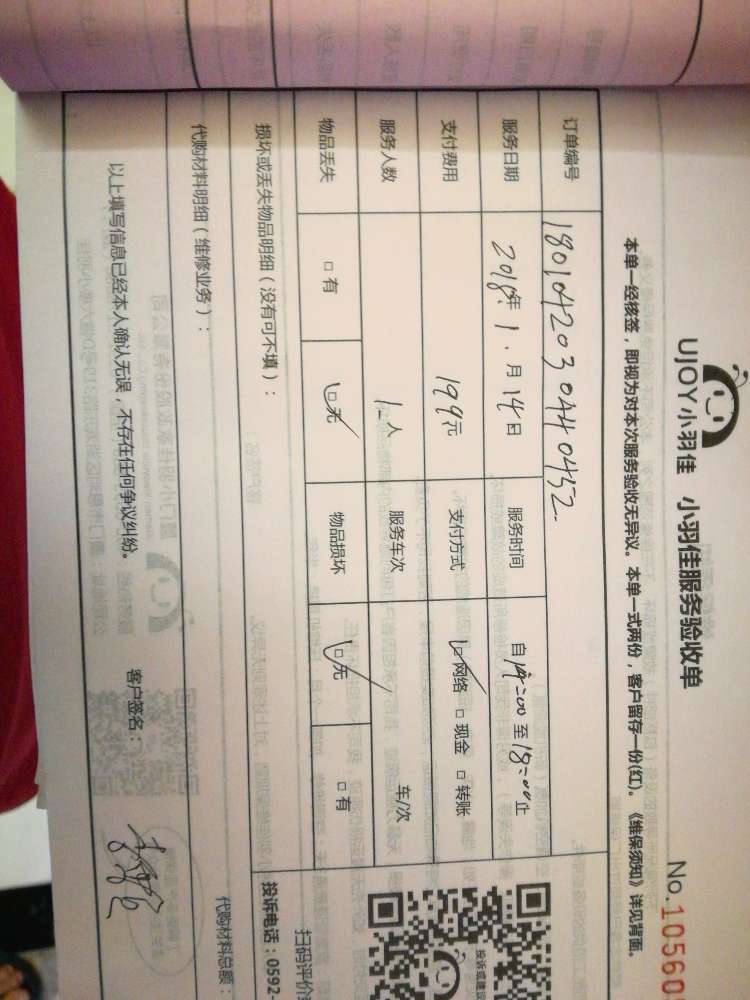 UJOY小羽佳 小羽佳服务验收单
No.10560
本单一经核签，即视为对本次服务验收无异议。本单一式两份，客户留存一份(红)。《维保须知》详见背面。
订单编号 1801042030440452
服务日期 2018年1.月14日 服务时间 自14:00至18:00止
支付费用 199元 支付方式 ☑网络 □现金 □转账
服务人数 1人 服务车次 车/次
物品丢失 □有 ☑无 物品损坏 ☑无 □有
损坏或丢失物品明细（没有可不填）：
代购材料明细（维修业务）：
代购材料总额：
以上填写信息已经本人确认无误，不存在任何争议纠纷。 客户签名：
投诉或建议
扫码评价
投诉电话：0592-